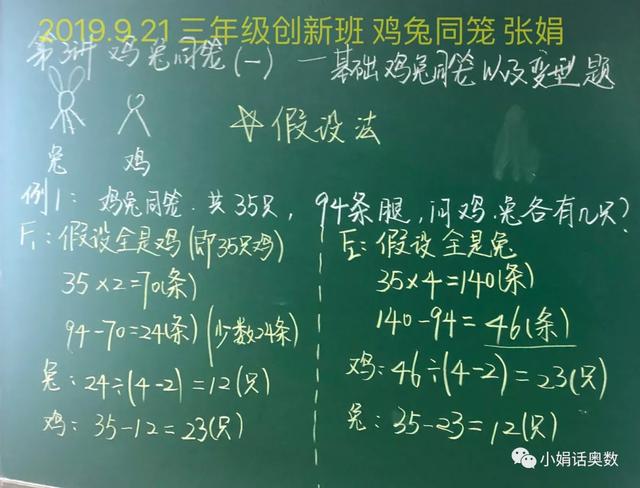 2019.9.21 三年级创新班 鸡兔同笼 张娟
第3讲 鸡兔同笼(一) — 基础鸡兔同笼以及变型题
☆假设法
兔 鸡
例1: 鸡兔同笼.共35只, 94条腿,问鸡.兔各有几只?
F₁:假设全是鸡(即35只鸡)
35×2=70(条)
94-70=24(条)(少数24条)
兔:24÷(4-2)=12(只)
鸡: 35-12=23(只)
F₂:假设全是兔
35×4=140(条)
140-94=46(条)
鸡:46÷(4-2)=23(只)
兔:35-23=12(只)
小娟话奥数